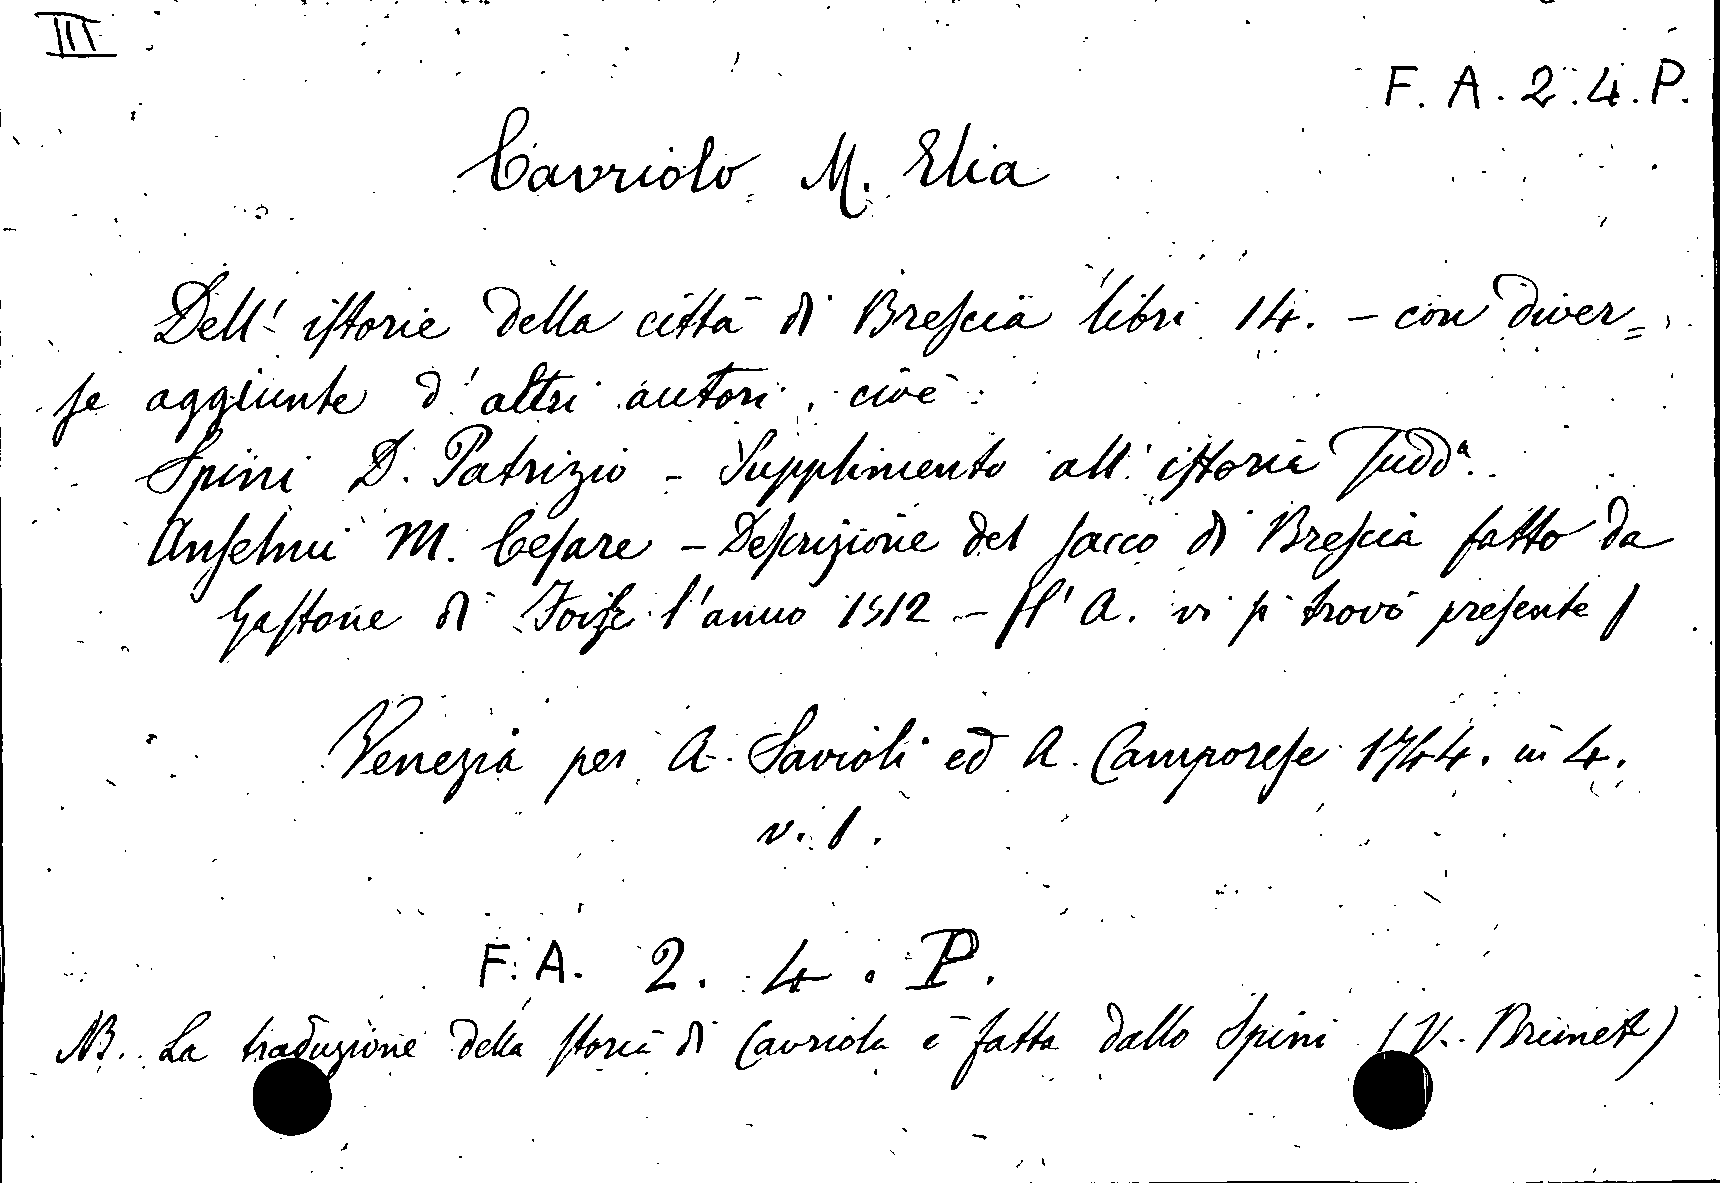 III
F. A. 2. 4. P.
Cavriolo M. Elia
Dell' istorie della città di Brescia libri 14. - con diver=
se aggiunte d'altri autori, cioè:
Spini D. Patrizio - Supplimento all' istoria sudd.ª
Anselmi M. Cesare - Descrizione del sacco di Brescia fatto da
Gastone di Foise l'anno 1512 - (l'A. vi si trovò presente)
Venezia per A. Savioli ed A. Camporese 1744. in 4.
v. 1.
F. A. 2. 4. P.
NB. La traduzione della storia di Cavriola è fatta dallo Spini (V. Brunet)